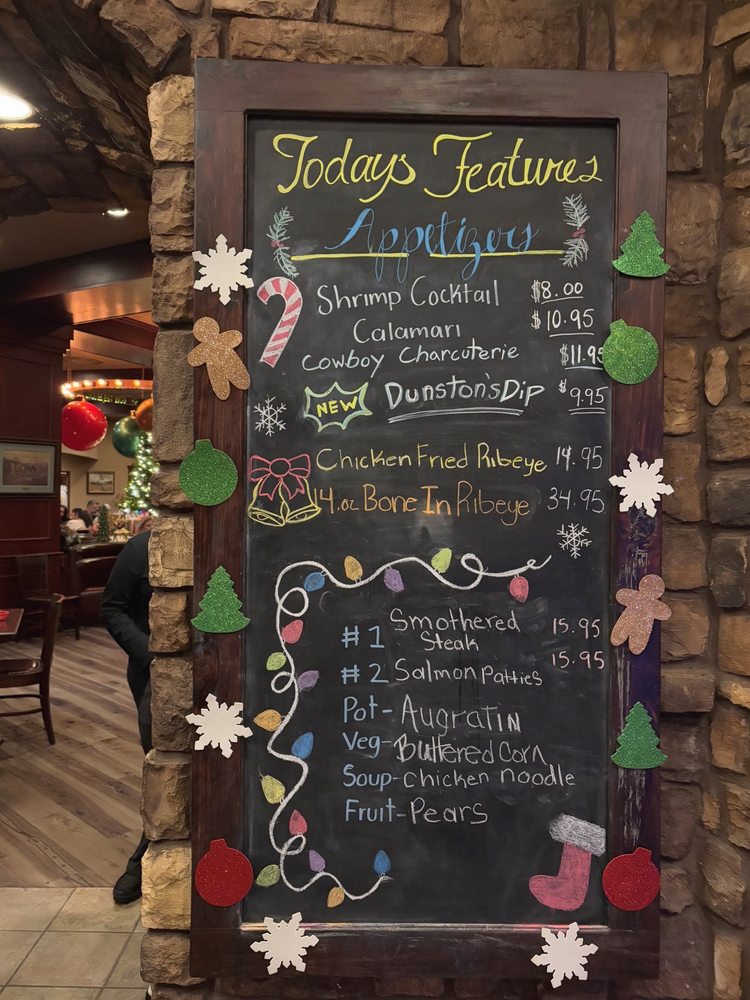 Todays Features
Appetizers
Shrimp Cocktail $8.00
Calamari $10.95
Cowboy Charcuterie $11.95
NEW Dunston's Dip $9.95
Chicken Fried Ribeye 14.95
14.oz Bone In Ribeye 34.95
#1 Smothered Steak 15.95
#2 Salmon Patties 15.95
Pot- Augratin
Veg- Buttered Corn
Soup- chicken noodle
Fruit- Pears